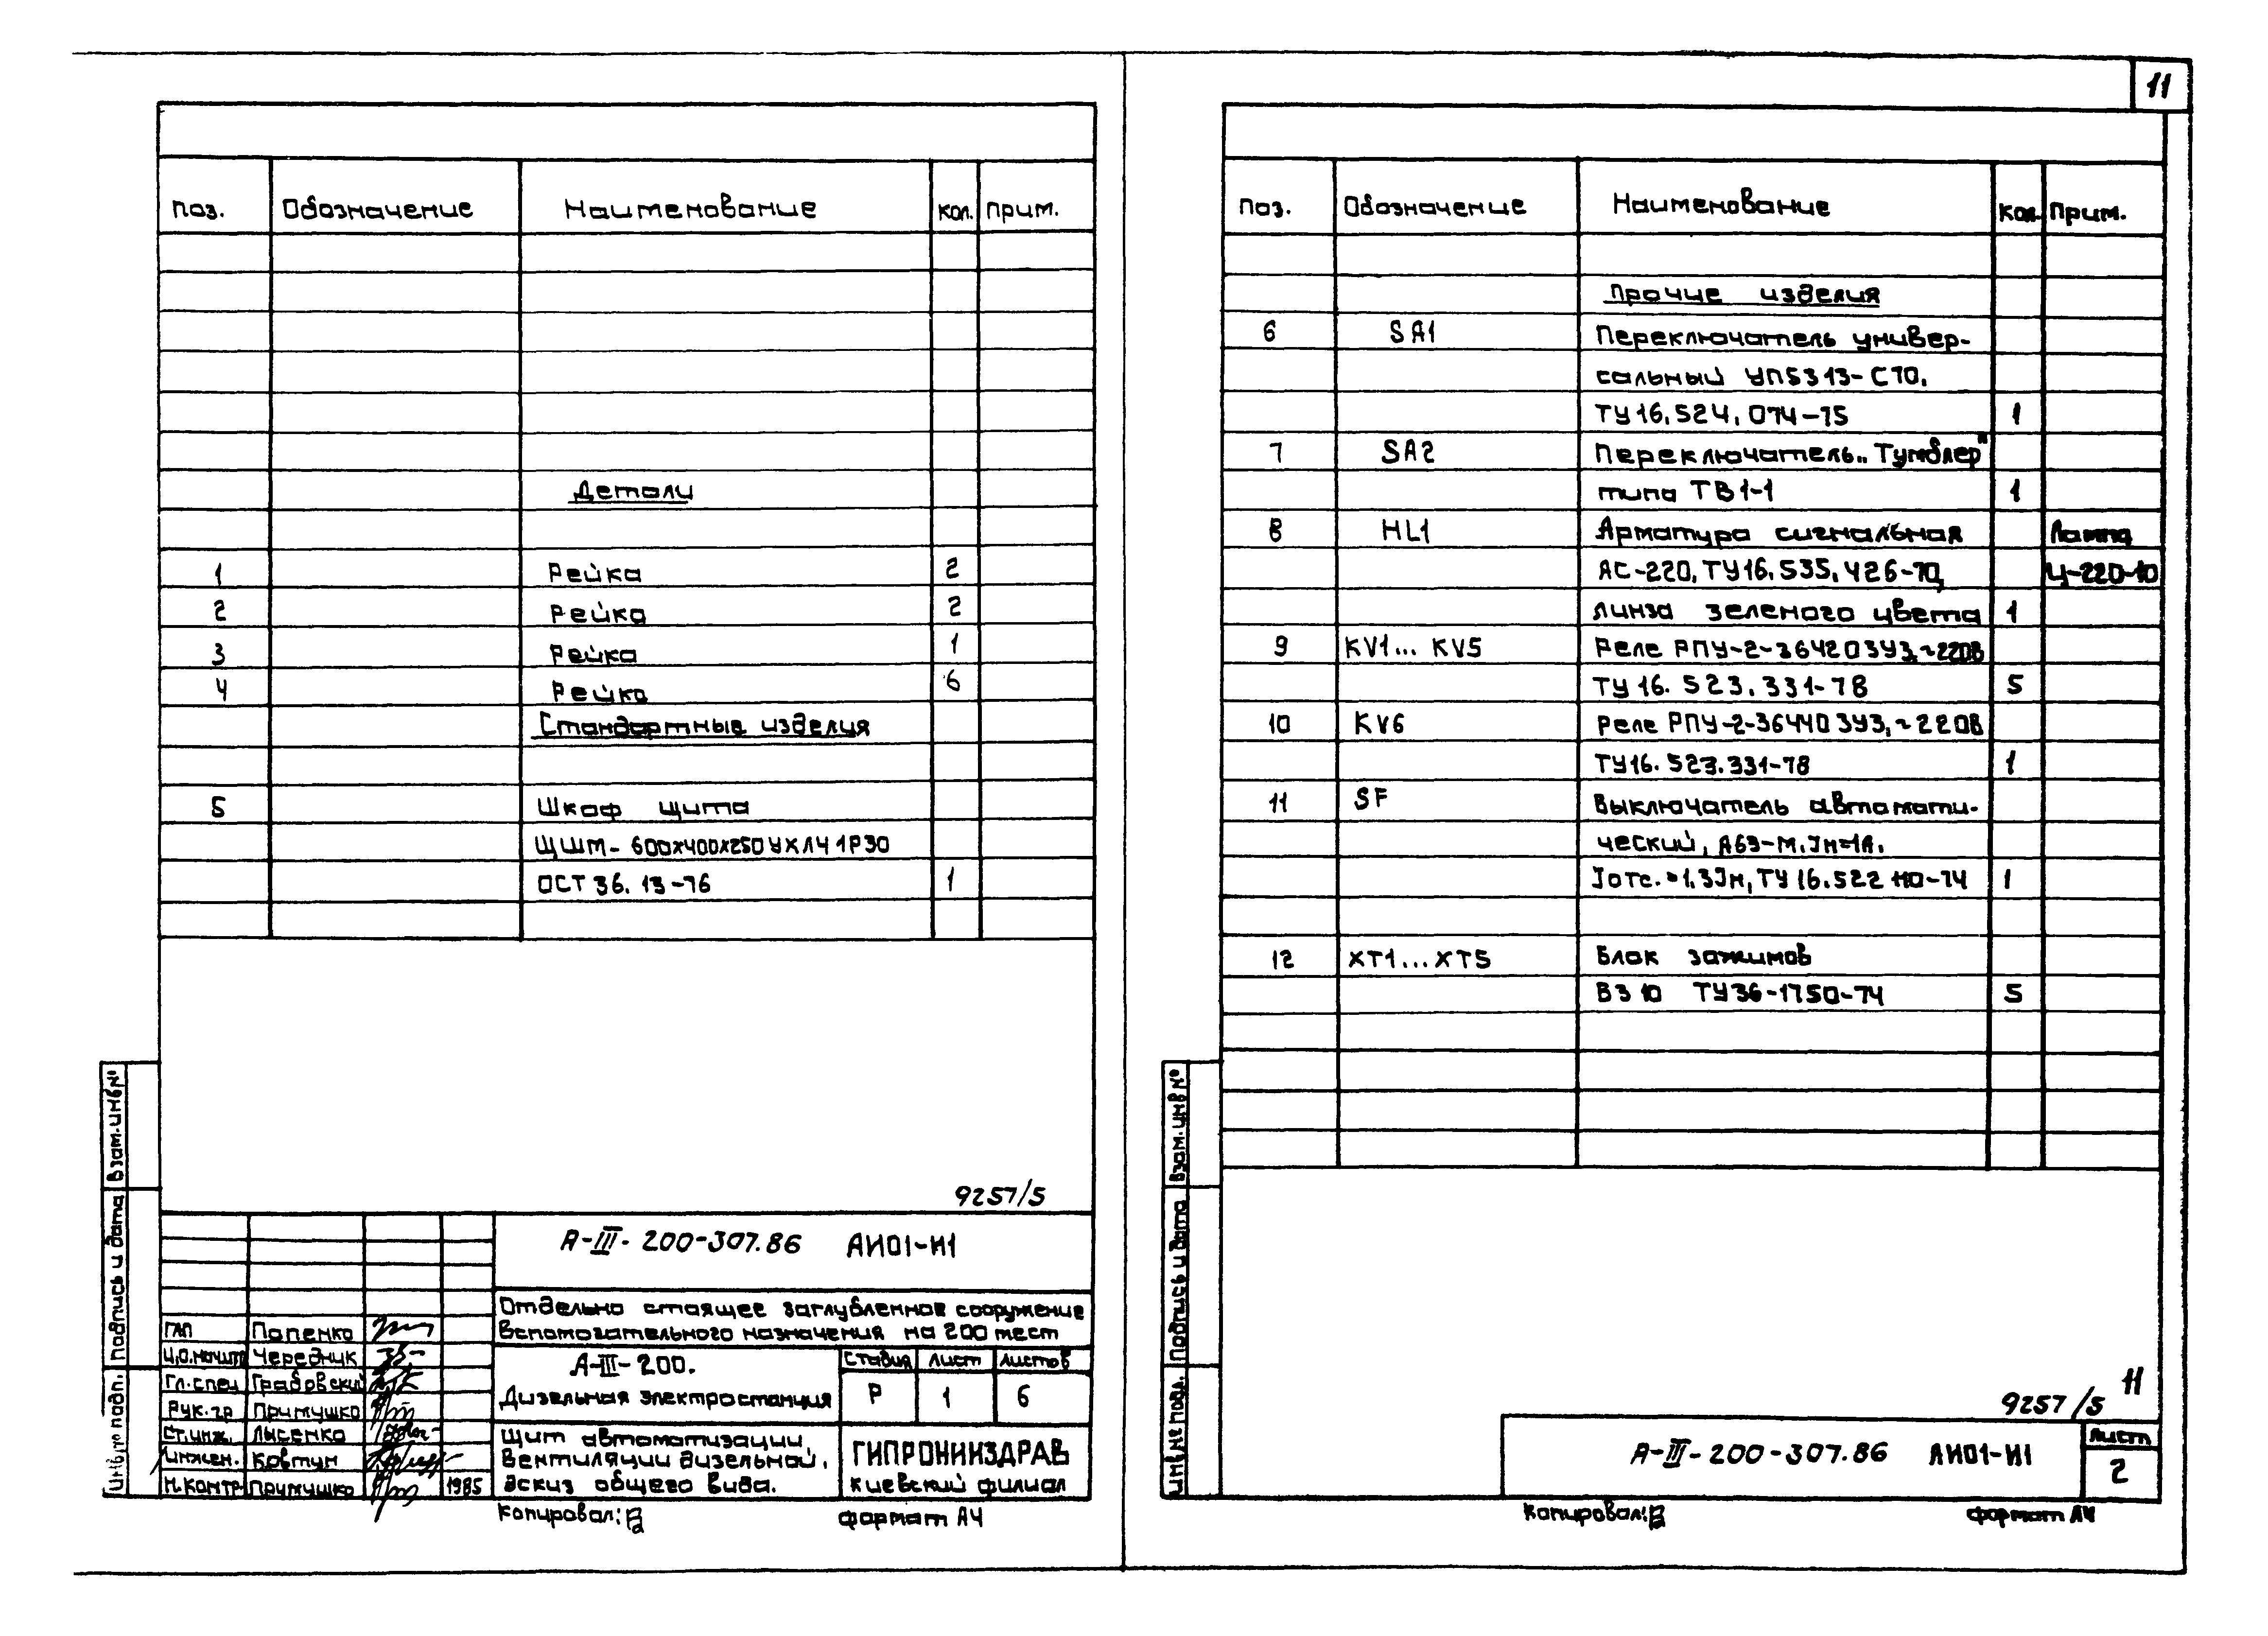 11
поз. Обозначение Наименование кол. прим.
Детали
1 Рейка 2
2 Рейка 2
3 Рейка 1
4 Рейка 6
Стандартные изделия
5 Шкаф щита
ЩШМ- 600х400х250 УХЛ4 1Р30
ОСТ 36. 13-76 1
9257/5
А-III-200-307.86 АИ01-И1
Отдельно стоящее заглубленное сооружение
вспомогательного назначения на 200 мест
ГАП Попенко
И.О.нач.шт Чередник
Гл.спец Грабовский
Рук.гр Примушко
Ст.инж. Лысенко
Инжен. Ковтун
Н.контр Примушко 1985
А-III-200.
Дизельная электростанция
Стадия Лист Листов
Р 1 6
Щит автоматизации,
Вентиляции дизельной,
Эскиз общего вида.
ГИПРОНИИЗДРАВ
киевский филиал
Копировал:
формат А4
Инв.№ подп. Подпись и дата Взам.инв№
поз. Обозначение Наименование кол. прим.
Прочие изделия
6 SA1 Переключатель универ-
сальный УП5313-С70.
ТУ 16.524.074-75 1
7 SA2 Переключатель „Тумблер"
типа ТВ1-1 1
8 HL1 Арматура сигнальная Лампа
АС-220, ТУ16.535.426-70, Ц-220-10
линза зеленого цвета 1
9 KV1... KV5 Реле РПУ-2-364203У3,~220В
ТУ 16. 523.331-78 5
10 KV6 Реле РПУ-2-364403У3,~220В
ТУ16. 523.331-78 1
11 SF Выключатель автомати-
ческий, А63-М.Iн=1А.
Iотс.=1.3Iн, ТУ 16.522 110-74 1
12 ХТ1...ХТ5 Блок зажимов
ВЗ 10 ТУ36-1750-74 5
11
9257/5
А-III-200-307.86 АИ01-И1
Лист
2
Копировал:
формат А4
Инв.№ подл. Подпись и дата Взам.инв№